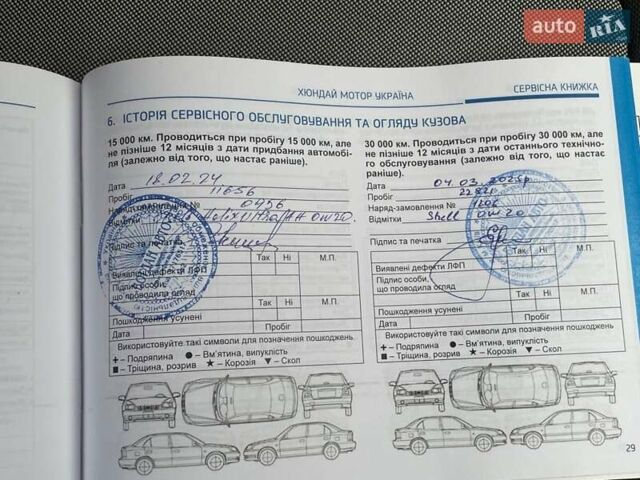 auto RIA
ХЮНДАЙ МОТОР УКРАЇНА
СЕРВІСНА КНИЖКА
6. ІСТОРІЯ СЕРВІСНОГО ОБСЛУГОВУВАННЯ ТА ОГЛЯДУ КУЗОВА
15 000 км. Проводиться при пробігу 15 000 км, але
не пізніше 12 місяців з дати придбання автомобі-
ля (залежно від того, що настає
раніше).
Дата 18.02.24
Пробіг 11656
Наряд-замовлення № 0956
Відмітки Shell Helix Ultra
Підпис та печатка
Так Ні М.П.
Виявлені дефекти ЛФП
Підпис особи,
що проводила огляд
Так Ні М.П.
Пошкодження усунені
Дата Пробіг
Використовуйте такі символи для позначення пошкоджень
+ – Подряпина ● – Вм'ятина, випуклість
■ – Тріщина, розрив ★ – Корозія ▼ – Скол
30 000 км. Проводиться при пробігу 30 000 км, але
не пізніше 12 місяців з дати останнього технічно-
го обслуговування (залежно від того, що настає
раніше).
Дата 04.03.2025р
Пробіг
Наряд-замовлення № 1206
Відмітки Shell
Підпис та печатка
Так Ні М.П.
Виявлені дефекти ЛФП
Підпис особи,
що проводила огляд
Так Ні М.П.
Пошкодження усунені
Дата Пробіг
Використовуйте такі символи для позначення пошкоджень
+ – Подряпина ● – Вм'ятина, випуклість
■ – Тріщина, розрив ★ – Корозія ▼ – Скол
29